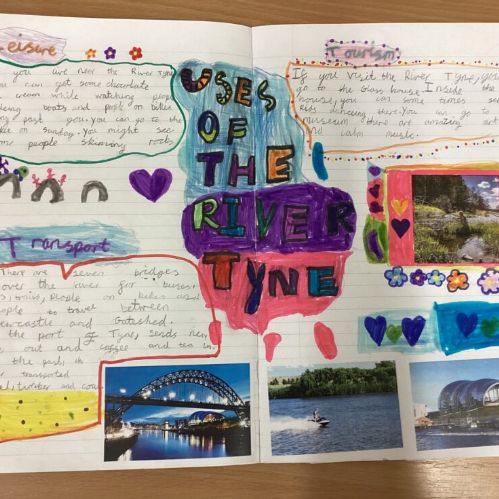 Leisure
you are near the River Tyne
you can get some chocolate
cream while watching
boats and people on bikes
past you. You can go to the
on sunday. You might see
people skimming rocks
USES
OF
THE
RIVER
TYNE
Transport
There are seven bridges
over the river for buses,
people on bikes and
people to travel between
Newcastle and Gateshed.
the port of Tyne, sends new
out and coffee and tea in.
the past, it
transported
timber and
Tourism
If you visit the River Tyne, you
go to the Glass house. Inside the
house, you can some times see
kids dancing there. You can go to
museum there are amazing art
and calm music.